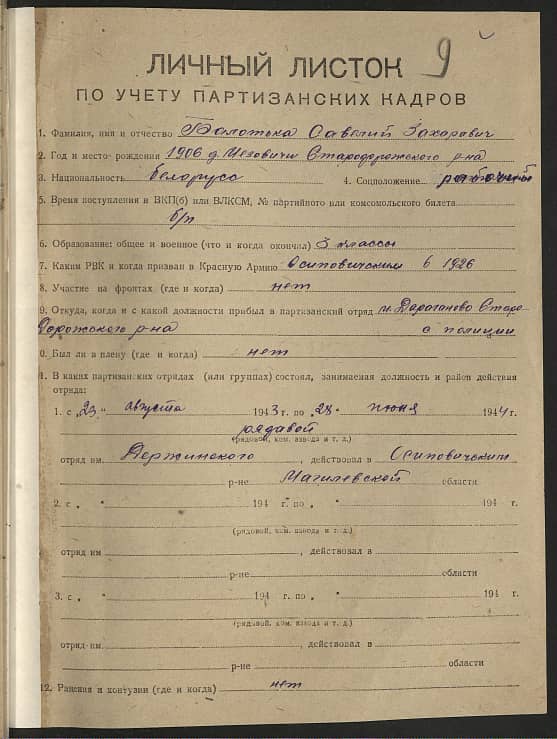 9
ЛИЧНЫЙ ЛИСТОК
ПО УЧЕТУ ПАРТИЗАНСКИХ КАДРОВ
1. Фамилия, имя и отчество Балотька Савелий Захаравич
2. Год и место рождения 1906 д. Мезовичи Стародорожского р-на
3. Национальность белорусс 4. Соцположение рабочий
5. Время поступления в ВКП(б) или ВЛКСМ, № партийного или комсомольского билета
б/п
6. Образование: общее и военное (что и когда окончил) 3 классы
7. Каким РВК и когда призван в Красную Армию Осиповичским в 1926
8. Участие на фронтах (где и когда) нет
9. Откуда, когда и с какой должности прибыл в партизанский отряд м. Дараганово Старо-
Дорожского р-на с полиции
0. Был ли в плену (где и когда) нет
1. В каких партизанских отрядах (или группах) состоял, занимаемая должность и район действия
отряда:
1. с „23" августа 1943 г. по „28" июня 1944 г.
рядавой
(рядовой, ком. взвода и т. д.)
отряд им. Держинского, действовал в Осиповичским
р-не Магилевской области
2. с „ " 194 г. по „ " 194 г.
(рядовой, ком. взвода и т. д.)
отряд им , действовал в
р-не области
3. с „ " 194 г. по „ " 194 г.
(рядовой, ком. взвода и т. д.)
отряд им. , действовал в
р-не области
12. Ранения и контузии (где и когда) нет